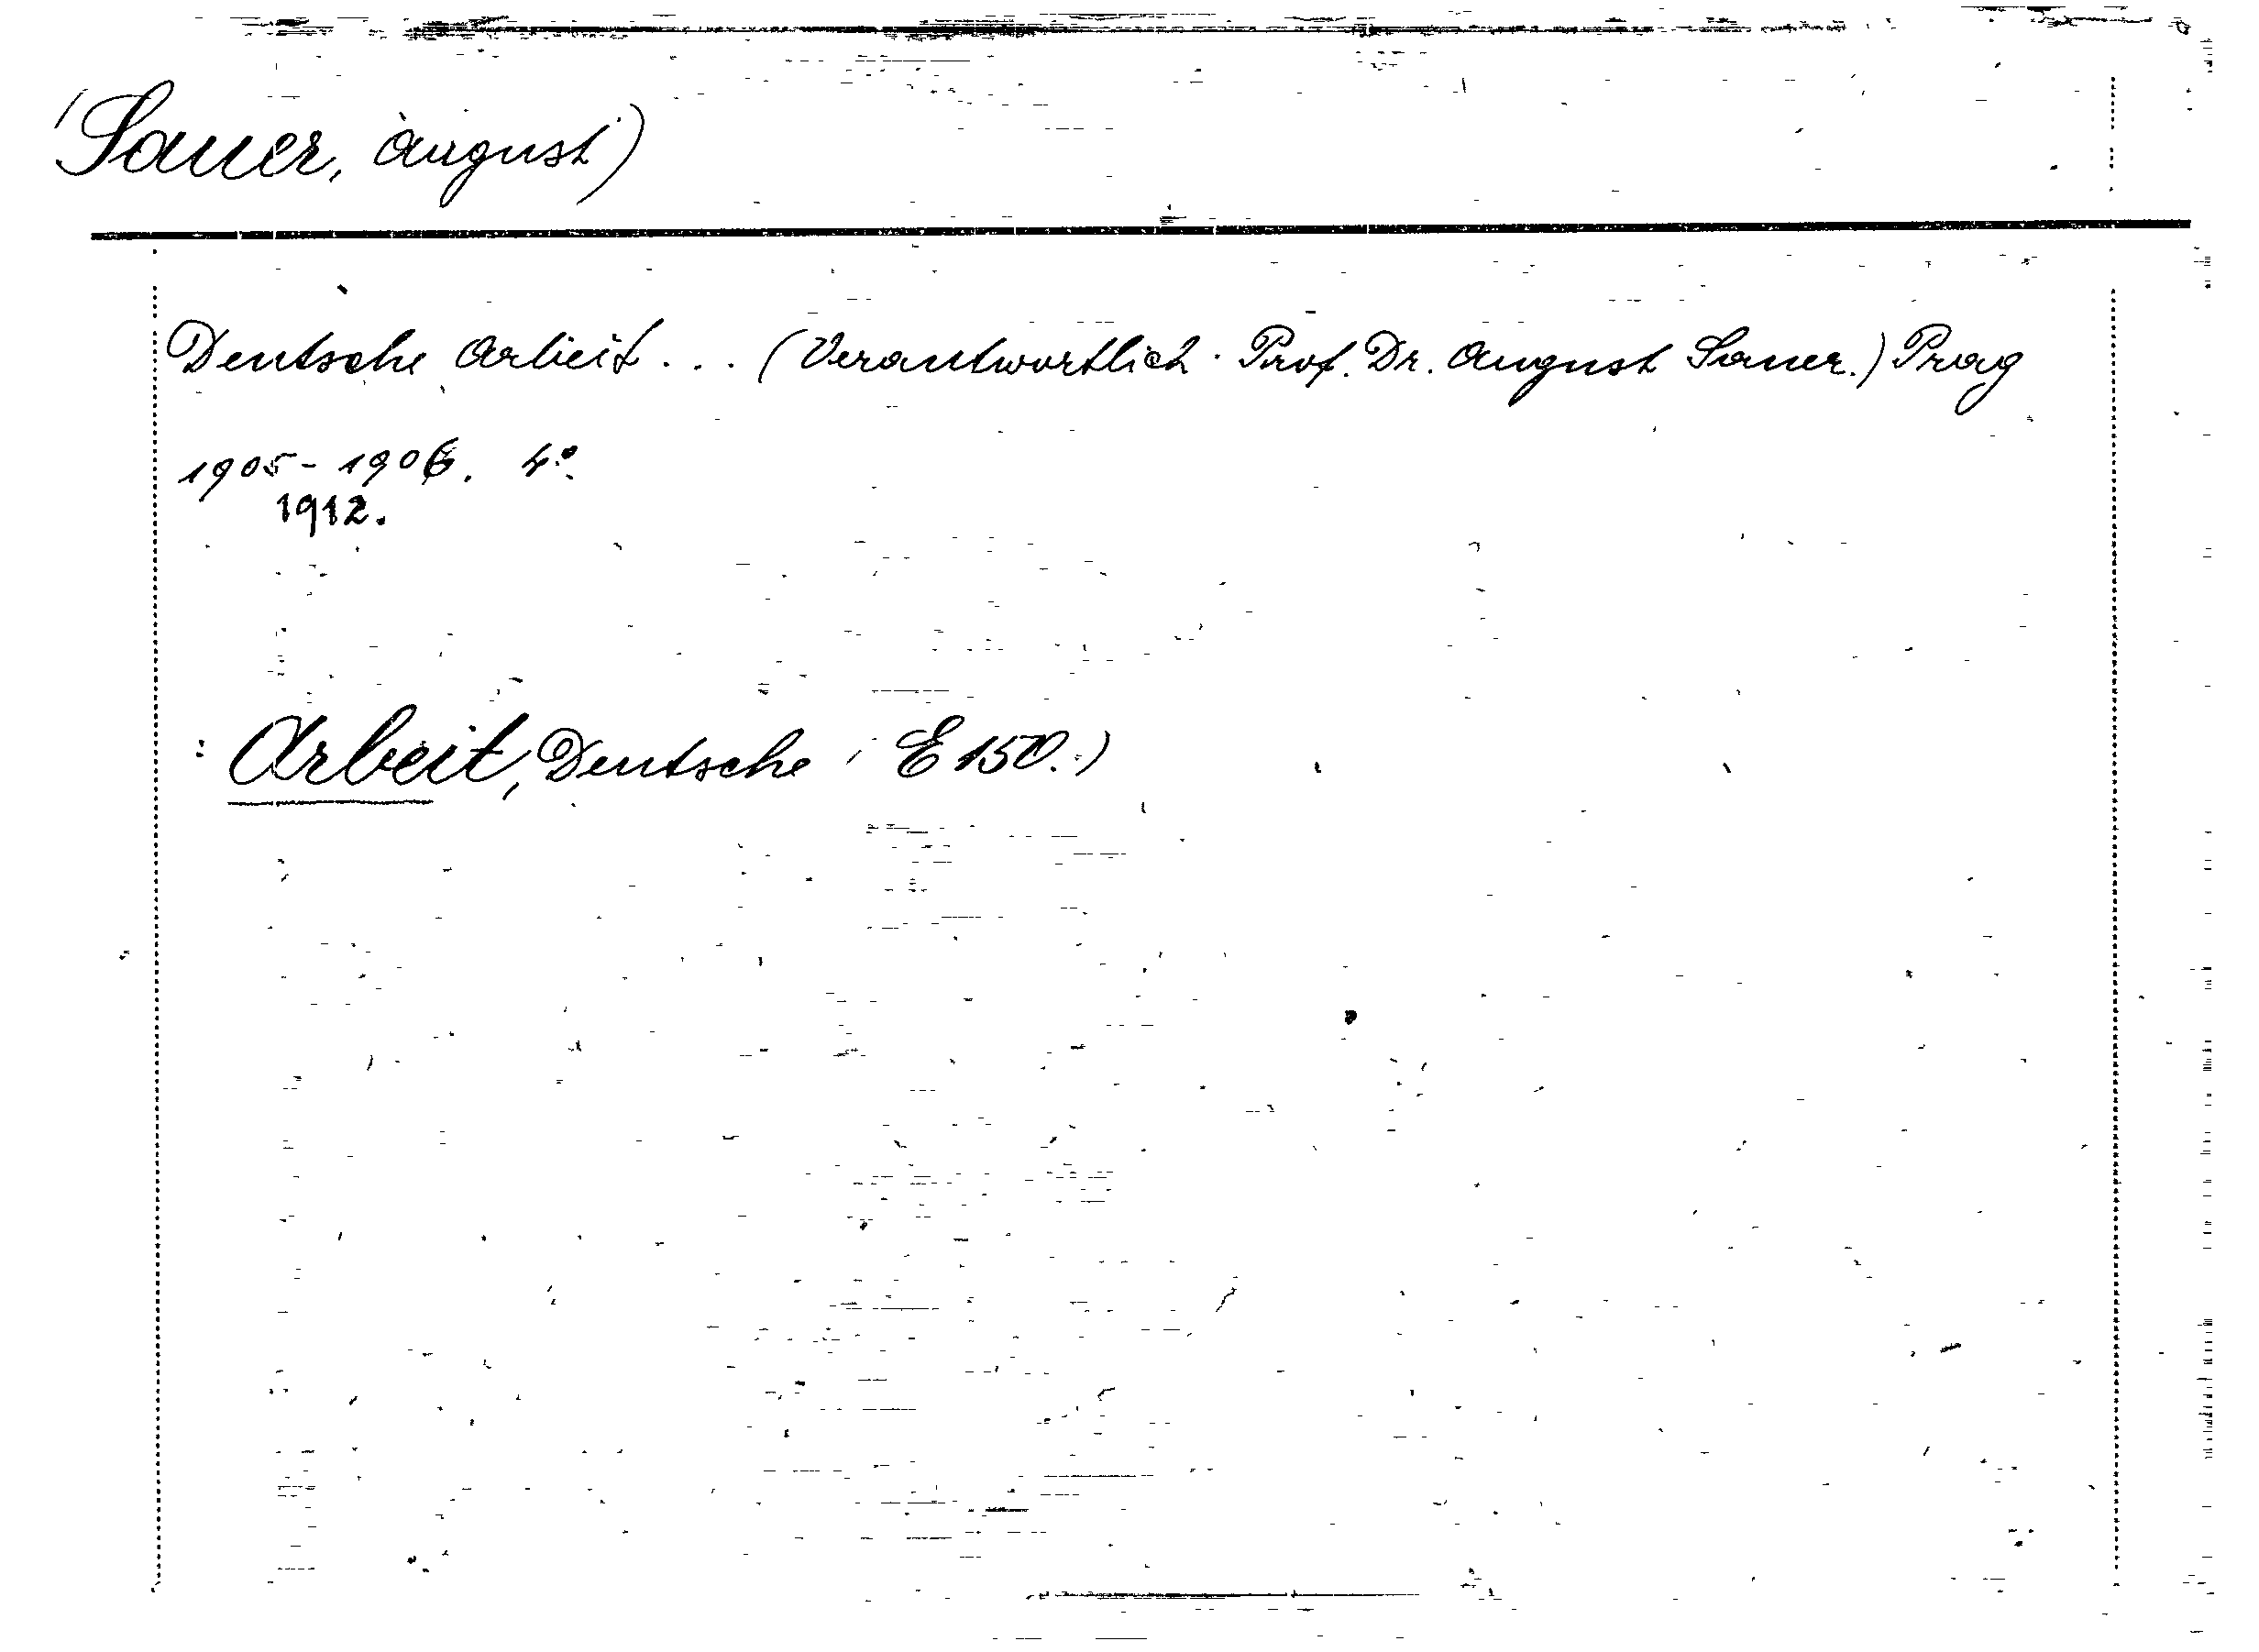 (Sauer, August)
Deutsche Arbeit... (Verantwortlich: Prof. Dr. August Sauer.) Prag
1905-1906. 4°.
1912.
: Arbeit, Deutsche (E 150.)